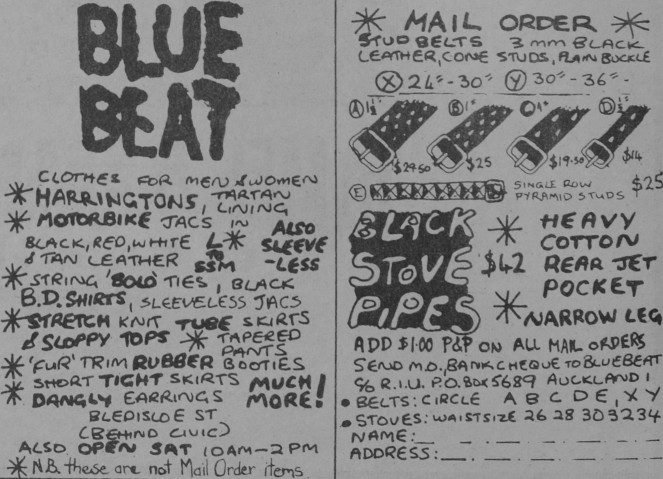 BLUE
BEAT
CLOTHES FOR MEN & WOMEN
HARRINGTONS, TARTAN LINING
MOTORBIKE JACS IN
BLACK, RED, WHITE
& TAN LEATHER
L TO SSM
ALSO
SLEEVE
-LESS
STRING 'BOLO' TIES, BLACK
B.D. SHIRTS, SLEEVELESS JACS
STRETCH KNIT TUBE SKIRTS
& SLOPPY TOPS
TAPERED
PANTS
'FUR' TRIM RUBBER BOOTIES
SHORT TIGHT SKIRTS
DANGLY EARRINGS
MUCH
MORE!
BLEDISLOE ST
(BEHIND CIVIC)
ALSO OPEN SAT 10AM-2PM
N.B. these are not Mail Order items
MAIL ORDER
STUD BELTS 3mm BLACK
LEATHER, CONE STUDS, PLAIN BUCKLE
X 24"-30" Y 30"-36"-
A 1½" B 1½" C 1" D ½"
$29.50 $25 $19.50 $14
E SINGLE ROW PYRAMID STUDS $25
BLACK
STOVE
PIPES
$42
HEAVY
COTTON
REAR JET
POCKET
NARROW LEG
ADD $1.00 P&P ON ALL MAIL ORDERS
SEND M.O., BANK CHEQUE TO BLUEBEAT
C/o R.I.U. P.O. BOX 5689 AUCKLAND 1
BELTS: CIRCLE A B C D E, X Y
STOVES: WAIST SIZE 26 28 30 32 34
NAME:
ADDRESS: